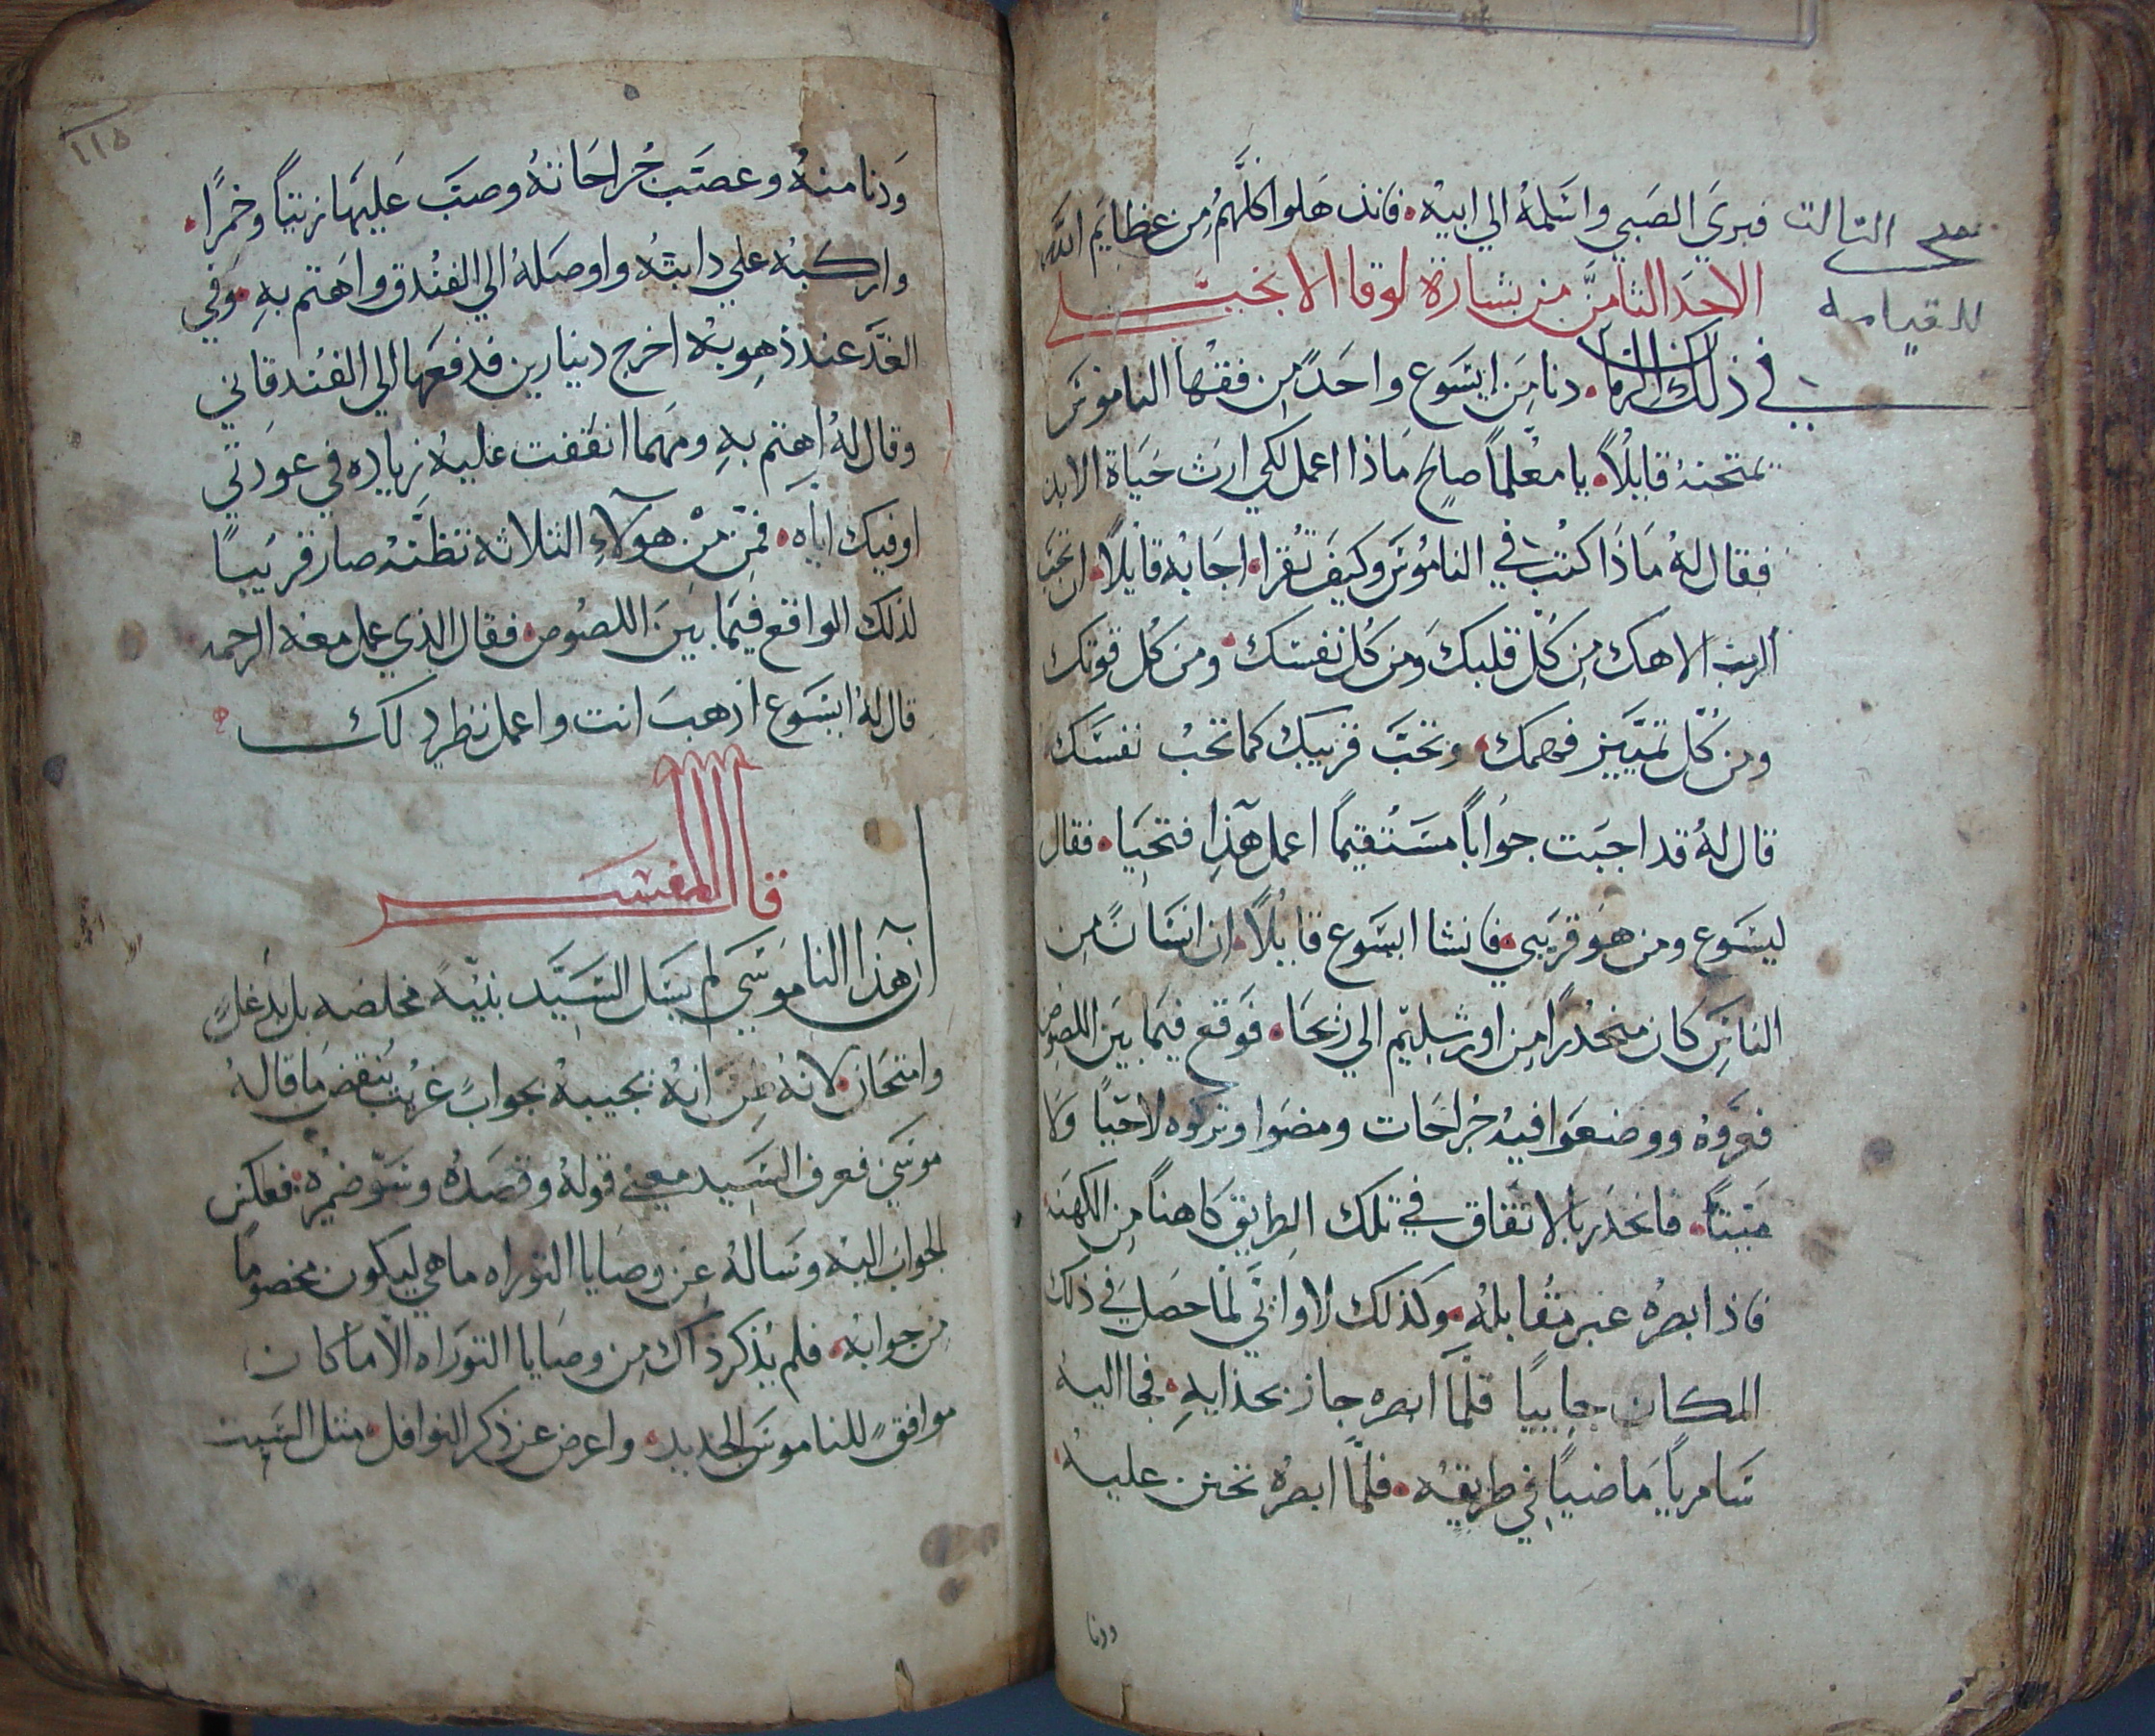 فبري الصبي واسلمه الي ابيه فاندهلوا كلهم من عظايم الله
الاحد الثامن من بشارة لوقا الانجيلي
التالت
للقيامه
في ذلك الزمان دنا من ايسوع واحد من فقها الناموس
يمتحنه قايلاً يا معلماً صالح ماذا اعمل لكي ارث حياة الابد
فقال له ماذا كتب في الناموس وكيف تقرا اجابه قايلاً ان تحب
الرب الاهك من كل قلبك ومن كل نفسك ومن كل قوتك
ومن كل تمييز فهمك وتحب قريبك كما تحب نفسك
قال له قد اجبت جواباً مستقيماً اعمل هذا فتحيا فقال
ليسوع ومن هو قريبي فانشا ايسوع قايلاً ان انسان من
الناس كان منحدراً من اورشليم الي ريحا فوقع فيما بين اللصوص
فعروه ووضعوا فيه جراحات ومضوا وتركوه لا حياً ولا
ميتاً فانحدر بالاتفاق في تلك الطريق كاهناً من الكهنه
فاذ ابصره عبر مقابله وكذلك لاواني لما حصل في ذلك
المكان جاييا فلما ابصره جاز بحذايه فجا اليه
سامرياً ماضياً في طريقه فلما ابصره تحنن عليه
ودنا
١١٥
ودنا منه وعصب جراحاته وصب عليها زيتاً وخمراً
واركبه علي دابته واوصله الي الفندق واهتم به وفي
الغد عند ذهوبه اخرج دينارين فدفعها الي الفندقاني
وقال له اهتم به ومهما انفقت عليه زياده في عودتي
اوفيك اياه فمن من هولاء الثلاثه تظنه صار قريباً
لذلك الواقع فيما بين اللصوص فقال الذي عمل معه الرحمه
قال له ايسوع اذهب انت واعمل نظير ذلك
قال المفسر
ان هذا الناموسي لم يسل السيد بنية مخلصه بل بدغل
وامتحان لانه ظن انه يجيبه بجواب غريب ينقض ما قاله
موسي فعرف السيد معني قوله وقصده وسو ضميره فعكس
الجواب اليه وساله عن وصايا التوراه ما هي ليكون مخصوماً
من جوابه فلم يذكر ذاك من وصايا التوراه الا ما كان
موافق للناموس الجديد واعرض عن ذكر النوافل مثل السبت